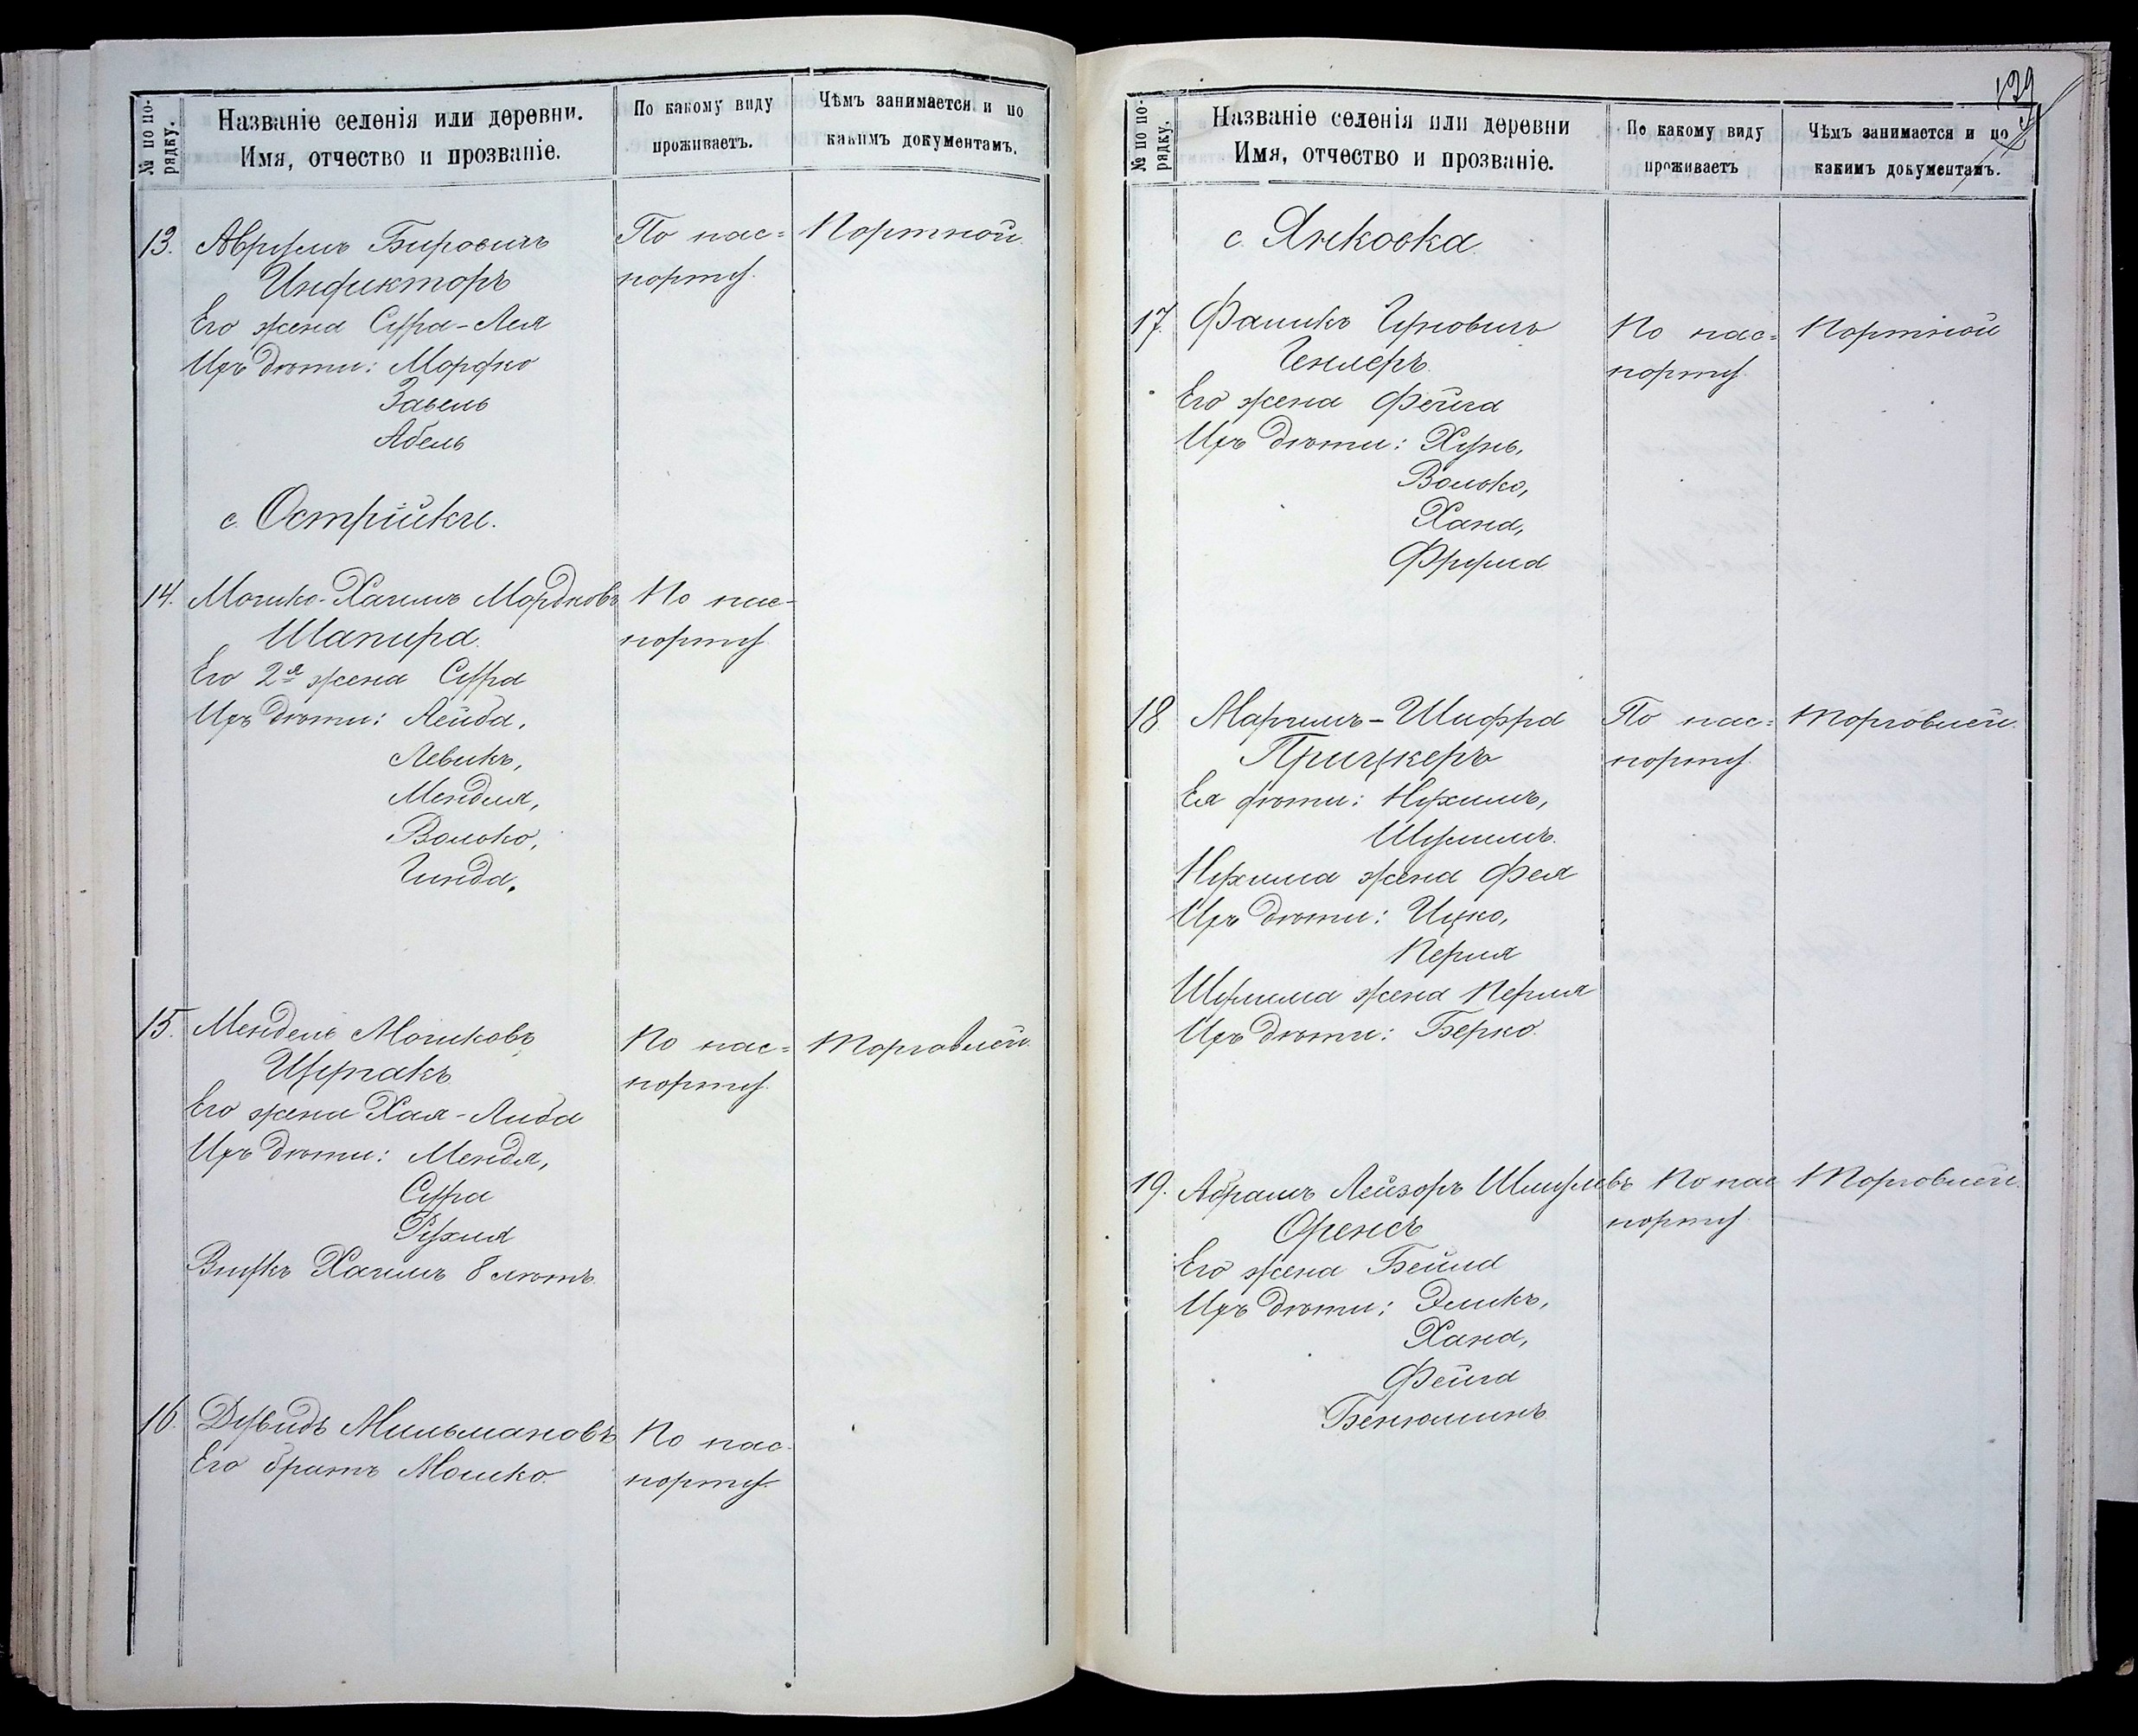 № по по-
рядку.
Названіе селенія или деревни.
Имя, отчество и прозваніе.
По какому виду
проживаетъ.
Чѣмъ занимается и по
какимъ документамъ.
13. Аврумъ Бировичъ По пас= Портной.
Индикторъ порту.
Его жена Сура-Лея
Ихъ дѣти: Мордко
Завель
Абель
с. Острійки.
14. Мошко-Хаимъ Мордковъ По пас-
Шапира. порту.
Его 2я жена Сура
Ихъ дѣти: Лейба,
Левикъ,
Мендля,
Волько,
Гинда.
15. Мендель Мошковъ По пас= Торговлей.
порту.
Его жена Хая-Либа
Ихъ дѣти: Мендя,
Сура
Рухля
Внукъ Хаимъ 8 лѣтъ.
16. Дувидъ Мильмановъ По пас-
Его братъ Мошко. порту.
139
№ по по-
рядку.
Названіе селенія или деревни
Имя, отчество и прозваніе.
По какому виду
проживаетъ
Чѣмъ занимается и по
какимъ документамъ.
с. Янковка
17. По пас= Портной
Генлеръ. порту.
Его жена Фейга
Ихъ дѣти: Хунь,
Волько,
Хана,
Фрума
18 Маріимъ-Шифра По пас= Торговлей.
Прицкеръ порту.
Ея дѣти: Нухимъ,
Шулимъ.
Нухима жена Фея
Ихъ дѣти: Ицко,
Перля
Шулима жена Перля
Ихъ дѣти: Берко.
19. Абрамъ Лейзоръ Шмулевъ По пас Торговлей.
порту.
Его жена Бейла
Ихъ дѣти: Эликъ,
Хана,
Фейга
Бенюминъ